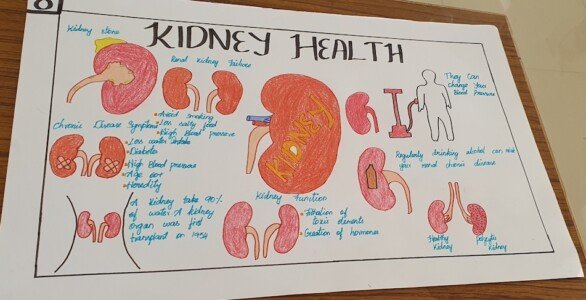 8
KIDNEY HEALTH
Kidney stone
Renal Kidney Failure
Avoid smoking
Less salty food
High blood pressure
Chronic Disease Symptoms
Less water intake
Diabetes
High Blood pressure
Age
Heredity
A Kidney take 90%
of water. A kidney
organ was first
transplant on 1954
KIDNEY
They Can
change your
Blood Pressure
Regularly drinking alcohol can
your renal chronic disease
Kidney Function
Filtration of
toxic elements
Creation of hormones
Healthy
Kidney
Kidney